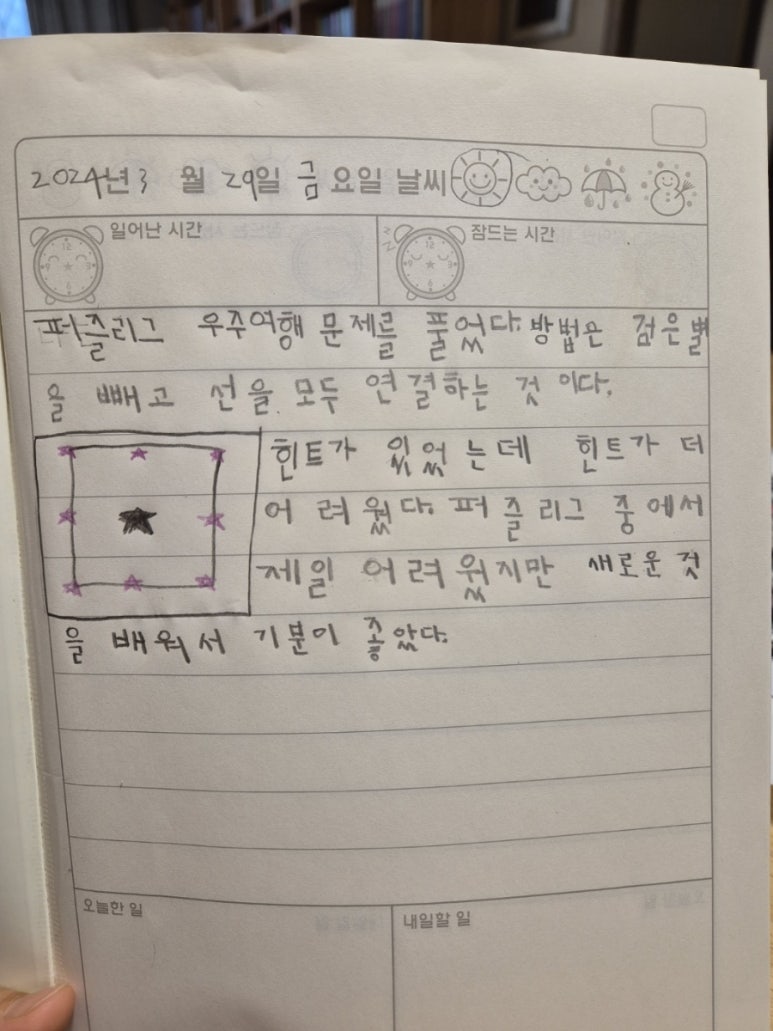 2024년 3 월 29일 금 요일 날씨
일어난 시간 잠드는 시간
퍼즐리그 우주여행 문제를 풀었다. 방법은 검은별
을 빼고 선을 모두 연결하는 것 이다.
힌트가 있었는데 힌트가 더
어려웠다. 퍼즐리그 중에서
제일 어려웠지만 새로운 것
을 배워서 기분이 좋았다.
오늘한 일 내일할 일